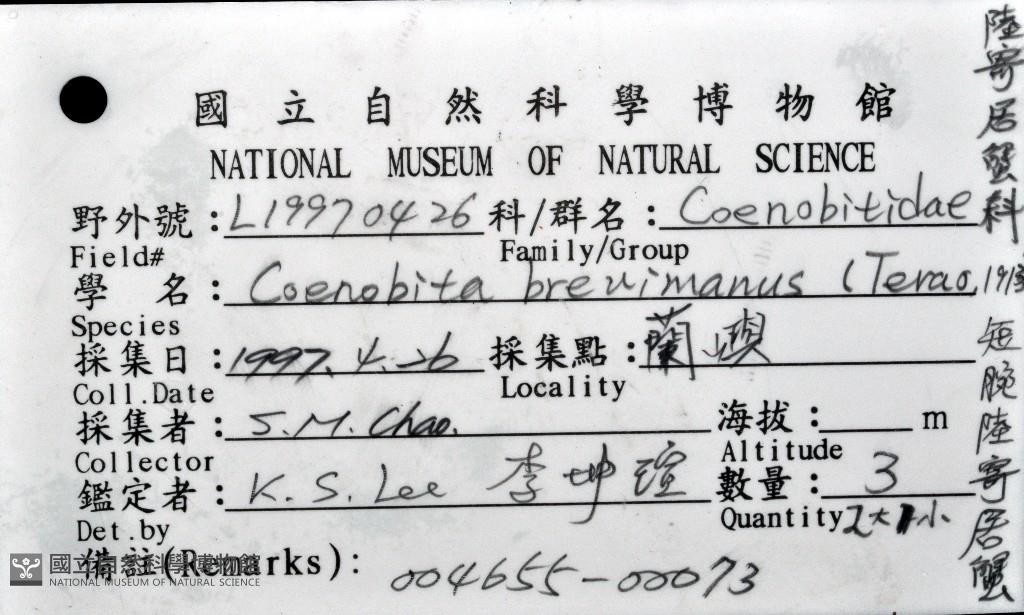 國立自然科學博物館
NATIONAL MUSEUM OF NATURAL SCIENCE
野外號:L19970426 科/群名:Coenobitidae
Field# Family/Group
學 名:Coenobita brevimanus (Terao, 1913
Species
採集日:1997.4.26 採集點:蘭嶼
Coll.Date Locality
採集者:S.M. Chao. 海拔: m
Collector Altitude
鑑定者:K.S. Lee 李坤瑄 數量:3
Det.by Quantity 2大1小
備註(Remarks): 004655-00073
陸寄居蟹科
短腕陸寄居蟹
國立自然科學博物館
NATIONAL MUSEUM OF NATURAL SCIENCE